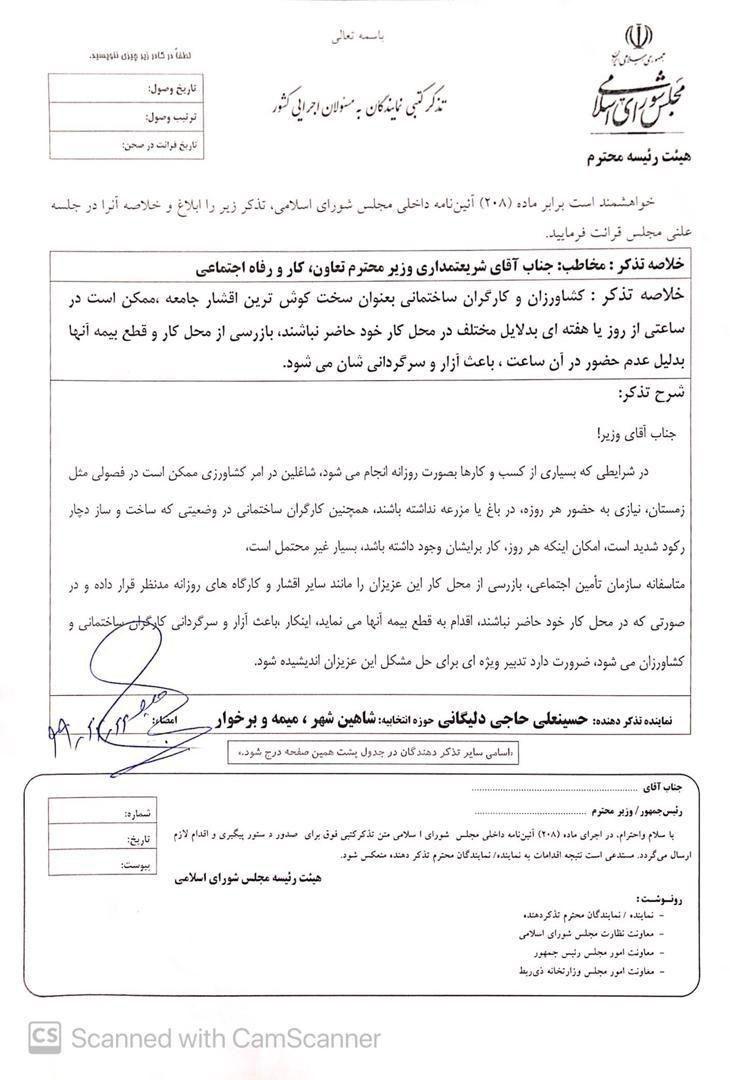 باسمه تعالی
جمهوری اسلامی ایران
مجلس شورای اسلامی
تذکر کتبی نمایندگان به مسئولان اجرایی کشور
لطفاً در کادر زیر چیزی ننویسید.
تاریخ وصول:
ترتیب وصول:
تاریخ قرائت در صحن:
هیئت رئیسه محترم
خواهشمند است برابر ماده (۲۰۸) آئین‌نامه داخلی مجلس شورای اسلامی، تذکر زیر را ابلاغ و خلاصه آنرا در جلسه
علنی مجلس قرائت فرمایید.
خلاصه تذکر : مخاطب: جناب آقای شریعتمداری وزیر محترم تعاون، کار و رفاه اجتماعی
خلاصه تذکر : کشاورزان و کارگران ساختمانی بعنوان سخت کوش ترین اقشار جامعه ،ممکن است در
ساعتی از روز یا هفته ای بدلایل مختلف در محل کار خود حاضر نباشند، بازرسی از محل کار و قطع بیمه آنها
بدلیل عدم حضور در آن ساعت ، باعث آزار و سرگردانی شان می شود.
شرح تذکر:
جناب آقای وزیر!
در شرایطی که بسیاری از کسب و کارها بصورت روزانه انجام می شود، شاغلین در امر کشاورزی ممکن است در فصولی مثل
زمستان، نیازی به حضور هر روزه، در باغ یا مزرعه نداشته باشند، همچنین کارگران ساختمانی در وضعیتی که ساخت و ساز دچار
رکود شدید است، امکان اینکه هر روز، کار برایشان وجود داشته باشد، بسیار غیر محتمل است،
متاسفانه سازمان تأمین اجتماعی، بازرسی از محل کار این عزیزان را مانند سایر اقشار و کارگاه های روزانه مدنظر قرار داده و در
صورتی که در محل کار خود حاضر نباشند، اقدام به قطع بیمه آنها می نماید، اینکار ،باعث آزار و سرگردانی کارگران ساختمانی و
کشاورزان می شود، ضرورت دارد تدبیر ویژه ای برای حل مشکل این عزیزان اندیشیده شود.
نماینده تذکر دهنده: حسینعلی حاجی دلیگانی حوزه انتخابیه: شاهین شهر ، میمه و برخوار امضاء:
«اسامی سایر تذکر دهندگان در جدول پشت همین صفحه درج شود.»
جناب آقای ........................................
رئیس‌جمهور/ وزیر محترم ........................................
شماره:
تاریخ:
پیوست:
با سلام واحترام، در اجرای ماده (۲۰۸) آئین‌نامه داخلی مجلس شورای ا سلامی متن تذکرکتبی فوق برای صدور د ستور پیگیری و اقدام لازم
ارسال می‌گردد. مستدعی است نتیجه اقدامات به نماینده/ نمایندگان محترم تذکر دهنده منعکس شود.
هیئت رئیسه مجلس شورای اسلامی
رونوشت:
- نماینده / نمایندگان محترم تذکردهنده
- معاونت نظارت مجلس شورای اسلامی
- معاونت امور مجلس رئیس جمهور
- معاونت امور مجلس وزارتخانه ذی‌ربط
CS Scanned with CamScanner